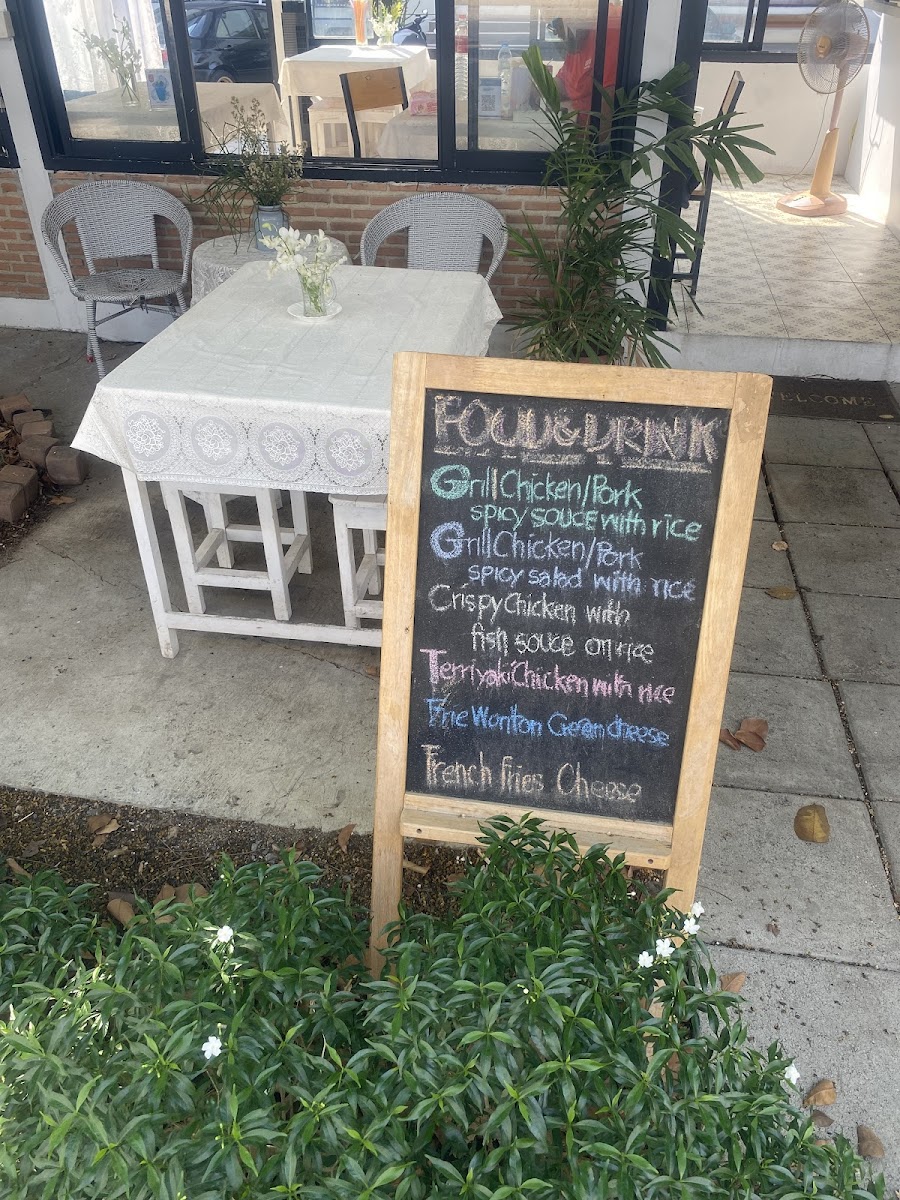 FOOD & DRINK
Grill Chicken/Pork
spicy souce with rice
Grill Chicken/Pork
spicy salad with rice
Crispy Chicken with
fish souce on rice
Terriyaki Chicken with rice
Frie Wonton Geam cheese
French fries Cheese
WELCOME